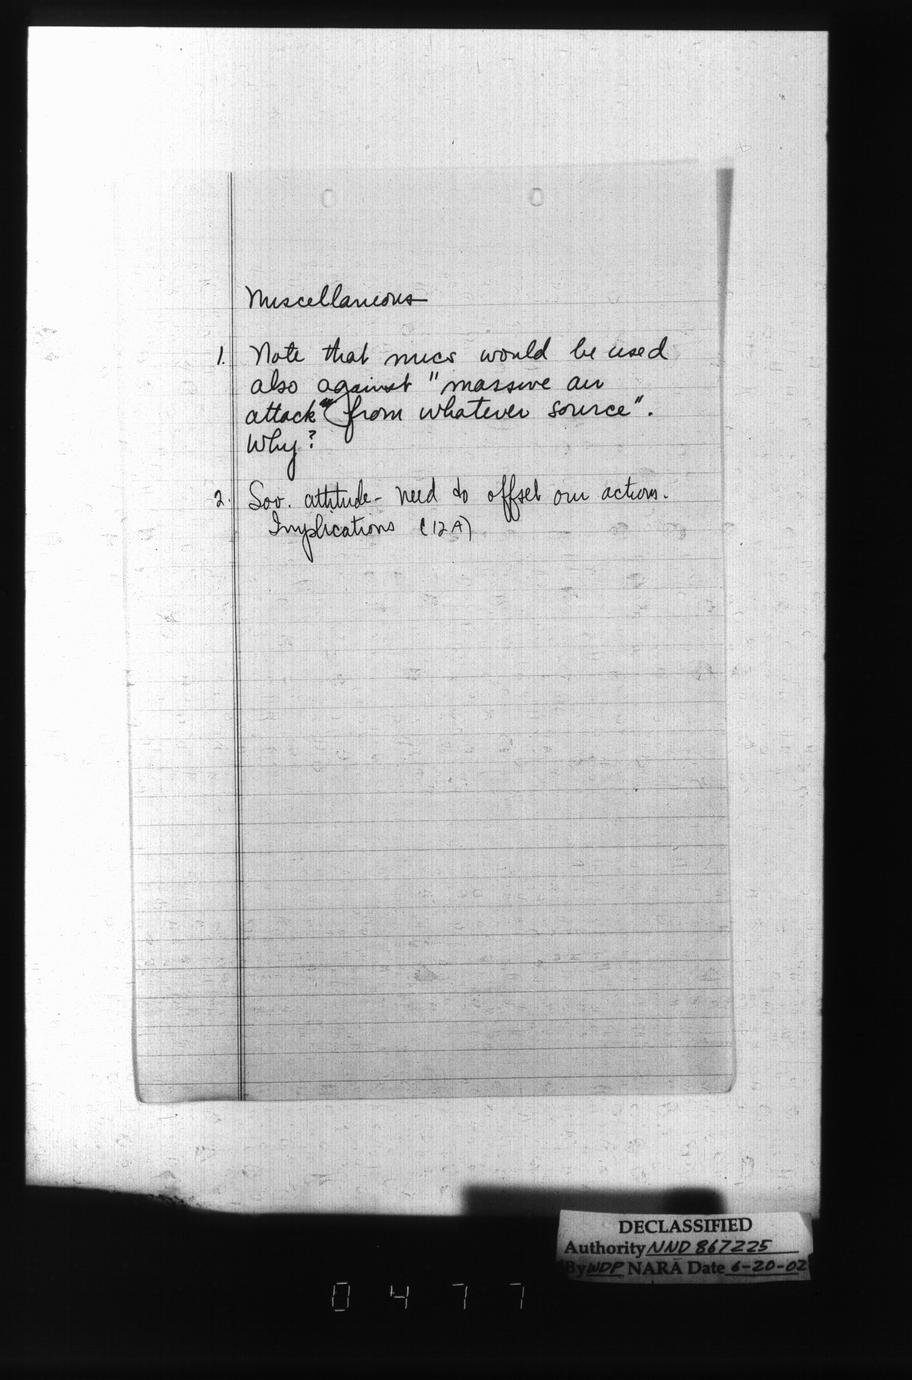 Miscellaneous
1. Note that nucs would be used
also against "massive air
attack" (from whatever source".
Why?
2. Sov. attitude - need to offset our action.
Implications (12A)
DECLASSIFIED
Authority NND 867225
By WDP NARA Date 6-20-02
0477